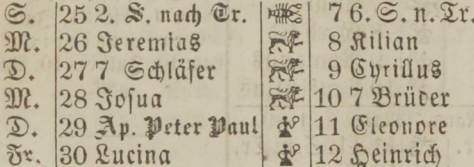 S. 25 2. S. nach Tr. 7 6. S. n. Tr.
M. 26 Jeremias 8 Kilian
D. 27 7 Schläfer 9 Cyrillus
M. 28 Josua 10 7 Brüder
D. 29 Ap. Peter Paul 11 Eleonore
Fr. 30 Lucina 12 Heinrich